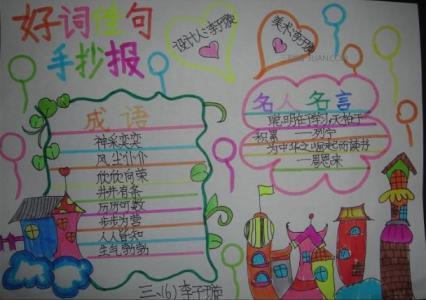 好词佳句
手抄报
设计人:李子璇
美术:李子璇
成语
神采奕奕
风尘仆仆
欣欣向荣
井井有条
历历可数
步步为营
人人皆知
生气勃勃
名人名言
聪明在于学习,天才在于
积累 ——列宁
为中华之崛起而读书
——周恩来
三、(6) 李子璇